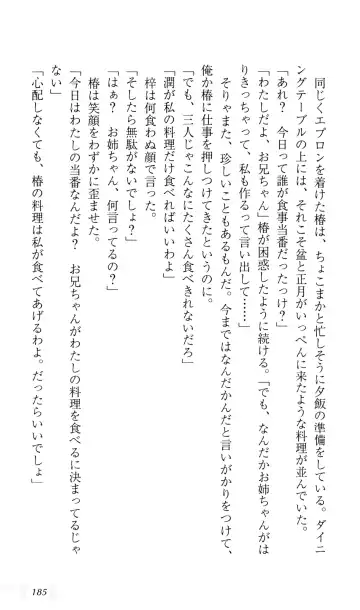 同じくエプロンを着けた椿は、ちょこまかと忙しそうに夕飯の準備をしている。ダイニ
ングテーブルの上には、それこそ盆と正月がいっぺんに来たような料理が並んでいた。
「あれ？　今日って誰が食事当番だったっけ？」
「わたしだよ、お兄ちゃん」椿が困惑したように続ける。「でも、なんだかお姉ちゃんがは
りきっちゃって、私も作るって言い出して……」
そりゃまた、珍しいこともあるもんだ。今まではなんだかんだと言いがかりをつけて、
俺か椿に仕事を押しつけてきたというのに。
「でも、三人じゃこんなにたくさん食べきれないだろ」
「潤が私の料理だけ食べればいいわよ」
梓は何食わぬ顔で言った。
「そしたら無駄がないでしょ？」
「はぁ？　お姉ちゃん、何言ってるの？」
椿は笑顔をわずかに歪ませた。
「今日はわたしの当番なんだよ？　お兄ちゃんがわたしの料理を食べるに決まってるじゃ
ない」
「心配しなくても、椿の料理は私が食べてあげるわよ。だったらいいでしょ」
185